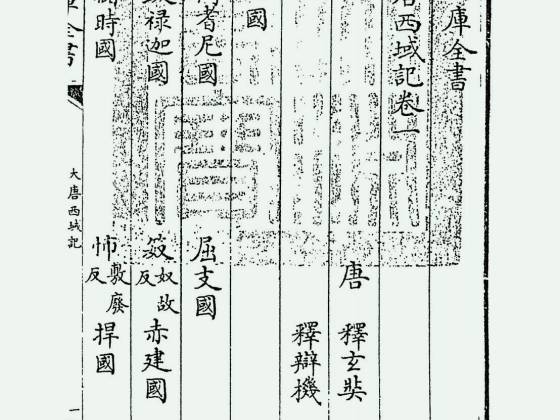 庫全書
西域記卷一
唐 釋玄奘
釋辯機
國
耆尼國 屈支國
祿迦國 笯奴故反赤建國
時國 㤄敷廢反捍國
大唐西域記 一
全書